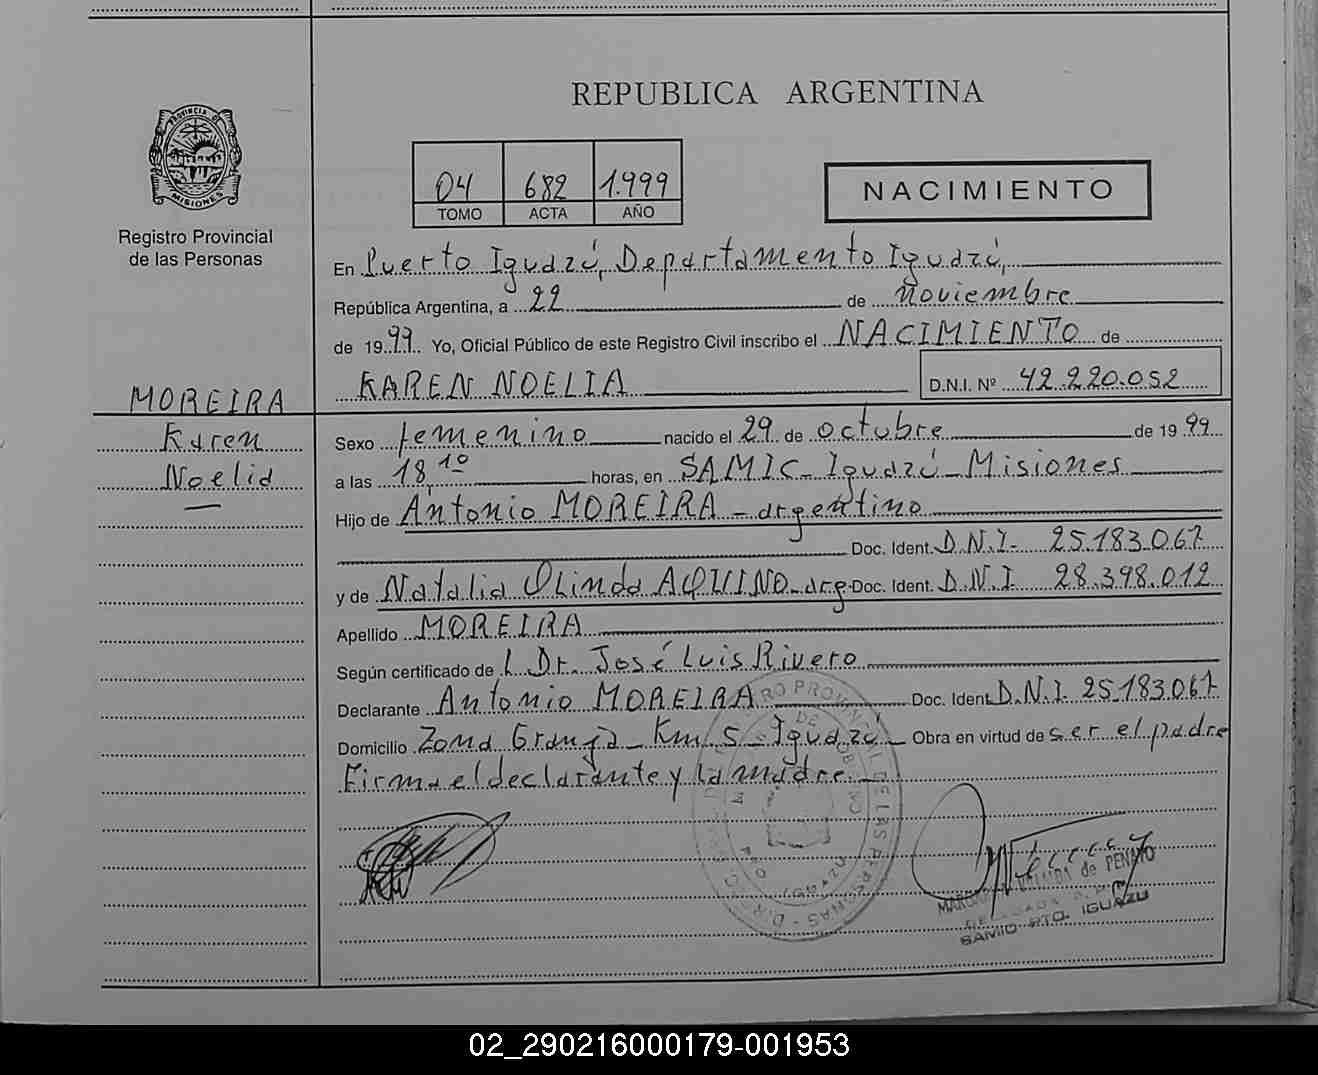 REPUBLICA ARGENTINA
PROVINCIA DE MISIONES
Registro Provincial
de las Personas
04 682 1.999
TOMO ACTA AÑO
NACIMIENTO
En Puerto Iguazú, Departamento Iguazú,
República Argentina, a 22 de noviembre
de 1999 Yo, Oficial Público de este Registro Civil inscribo el NACIMIENTO de
KAREN NOELIA D.N.I. Nº 42.220.052
MOREIRA
Karen
Noelia
Sexo femenino nacido el 29 de octubre de 1999
a las 18,10 horas, en SAMIC - Iguazú - Misiones
Hijo de Antonio MOREIRA - argentino
Doc. Ident. D.N.I. 25.183.067
y de Natalia Olinda AQUINO - arg. Doc. Ident. D.N.I 28.398.012
Apellido MOREIRA
Según certificado de l Dr. José Luis Rivero
Declarante Antonio MOREIRA Doc. Ident. D.N.I. 25.183.067
Domicilio Zona Granja - Km. 5 - Iguazú - Obra en virtud de ser el padre
Firma el declarante y la madre. -
de PENAYO
SAMIC PTO. IGUAZU
02_290216000179-001953